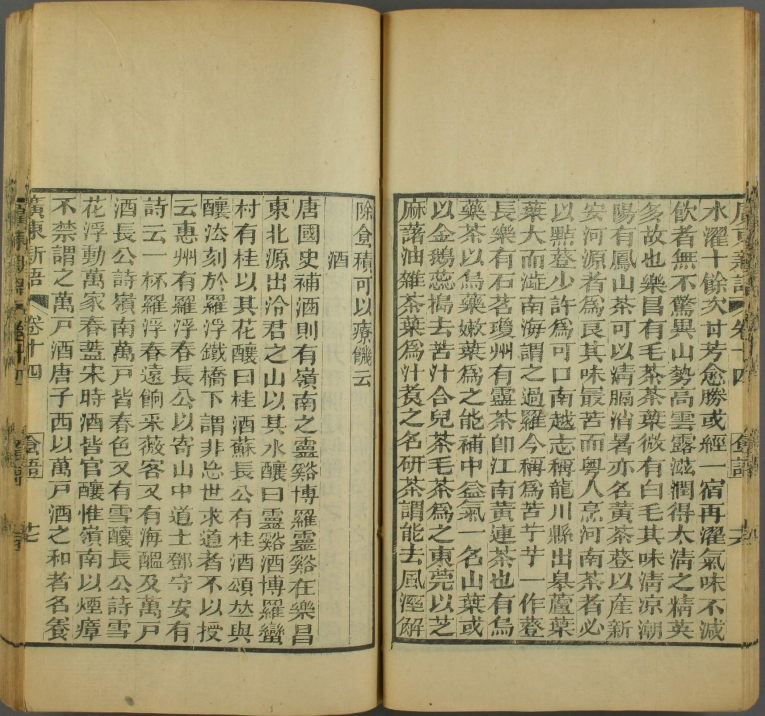 廣東新語 卷十四 食語
水濯十餘次甘芳愈勝或經一宿再濯氣味不減
飲者無不驚異山勢高雲露滋潤得太清之精英
多故也樂昌有毛茶茶葉微有白毛其味清凉潮
陽有鳳山茶可以清膈消暑亦名黃茶䔲以産新
安河源者爲良其味最苦而粵人烹河南茶者必
以點䔲少許爲可口南越志稱龍川縣出皋蘆葉
葉大而澁南海謂之過羅今稱爲苦䒷䒷一作䔲
長樂有石茗瓊州有靈茶卽江南黃連茶也有烏
藥茶以烏藥嫩葉爲之能補中益氣一名山葉或
以金鵝蕊搗去苦汁合兒茶毛茶爲之東莞以芝
麻藷油雜茶葉爲汁煑之名研茶謂能去風溼解
除食積可以療饑云
酒
唐國史補酒則有嶺南之靈谿博羅靈谿在樂昌
東北源出泠君之山以其水釀曰靈谿酒博羅蠻
村有桂以其花釀曰桂酒蘇長公有桂酒頌𠀤與
釀法刻於羅浮鐵橋下謂非忘世求道者不以授
云惠州有羅浮春長公以寄山中道士鄧守安有
詩云一杯羅浮春遠餉采薇客又有海醞及萬戸
酒長公詩嶺南萬戸皆春色又有雪釀長公詩雪
花浮動萬家春蓋宋時酒皆官釀惟嶺南以煙瘴
不禁謂之萬戸酒唐子西以萬戸酒之和者名養
廣東新語 卷十四 食語